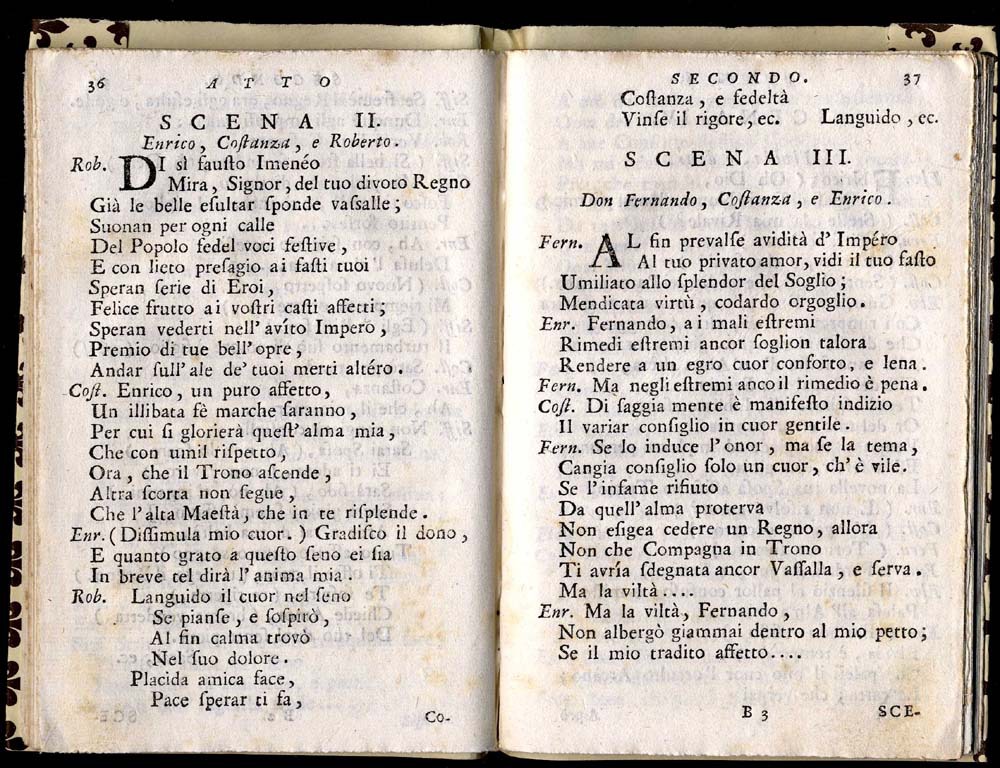 36 ATTO
SCENA II.
Enrico, Coſtanza, e Roberto.
Rob. DI sì fauſto Imenéo
Mira, Signor, del tuo divoto Regno
Già le belle eſultar ſponde vaſſalle;
Suonan per ogni calle
Del Popolo fedel voci feſtive,
E con lieto preſagio ai faſti tuoi
Speran ſerie di Eroi,
Felice frutto ai voſtri caſti affetti;
Speran vederti nell' avíto Impero,
Premio di tue bell' opre,
Andar ſull' ale de' tuoi merti altéro.
Coſt. Enrico, un puro affetto,
Un illibata fè marche ſaranno,
Per cui ſi glorierà queſt' alma mia,
Che con umil riſpetto,
Ora, che il Trono aſcende,
Altra ſcorta non ſegue,
Che l' alta Maeſtà, che in te riſplende.
Enr. (Diſſimula mio cuor.) Gradiſco il dono,
E quanto grato a queſto ſeno ei ſia
In breve tel dirà l' anima mia.
Rob. Languido il cuor nel ſeno
Se pianſe, e ſoſpirò,
Al fin calma trovò
Nel ſuo dolore.
Placida amica face,
Pace ſperar ti fa,
Co-
SECONDO. 37
Coſtanza, e fedeltà
Vinſe il rigore, ec. Languido, ec.
SCENA III.
Don Fernando, Coſtanza, e Enrico.
Fern. AL fin prevalſe avidità d' Impéro
Al tuo privato amor, vidi il tuo faſto
Umiliato allo ſplendor del Soglio;
Mendicata virtù, codardo orgoglio.
Enr. Fernando, ai mali eſtremi
Rimedi eſtremi ancor ſoglion talora
Rendere a un egro cuor conforto, e lena.
Fern. Ma negli eſtremi anco il rimedio è pena.
Coſt. Di ſaggia mente è manifeſto indizio
Il variar conſiglio in cuor gentile.
Fern. Se lo induce l' onor, ma ſe la tema,
Cangia conſiglio ſolo un cuor, ch' è vile.
Se l' infame rifiuto
Da quell' alma proterva
Non eſigea cedere un Regno, allora
Non che Compagna in Trono
Ti avría ſdegnata ancor Vaſſalla, e ſerva.
Ma la viltà....
Enr. Ma la viltà, Fernando,
Non albergò giammai dentro al mio petto;
Se il mio tradito affetto....
B 3 SCE-